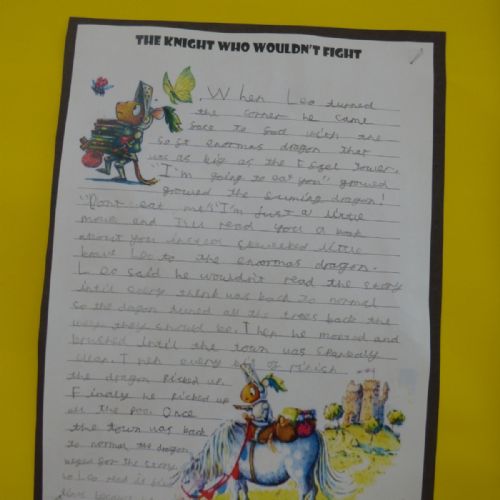 THE KNIGHT WHO WOULDN'T FIGHT
When Leo turned
the corner he came
face to with the
enormas dragon that
was as big as the tower.
"I'm going to eat you" growed
growed the dragon!
"Dont eat me!" "I'm just a little
mouse and I'll read you a book
about you instead little
Leo to the enormas dragon.
Leo said he wouldn't read the story
until every was back to normal
so the dragon turned all the trees back the
way they should be. Then he moped and
brushed until the town was
clean. Then every bit of
the dragon Picked up.
Finaly he Picked up
all the poo. Once
the town was back
to normal the dragon
for the story
so Leo read